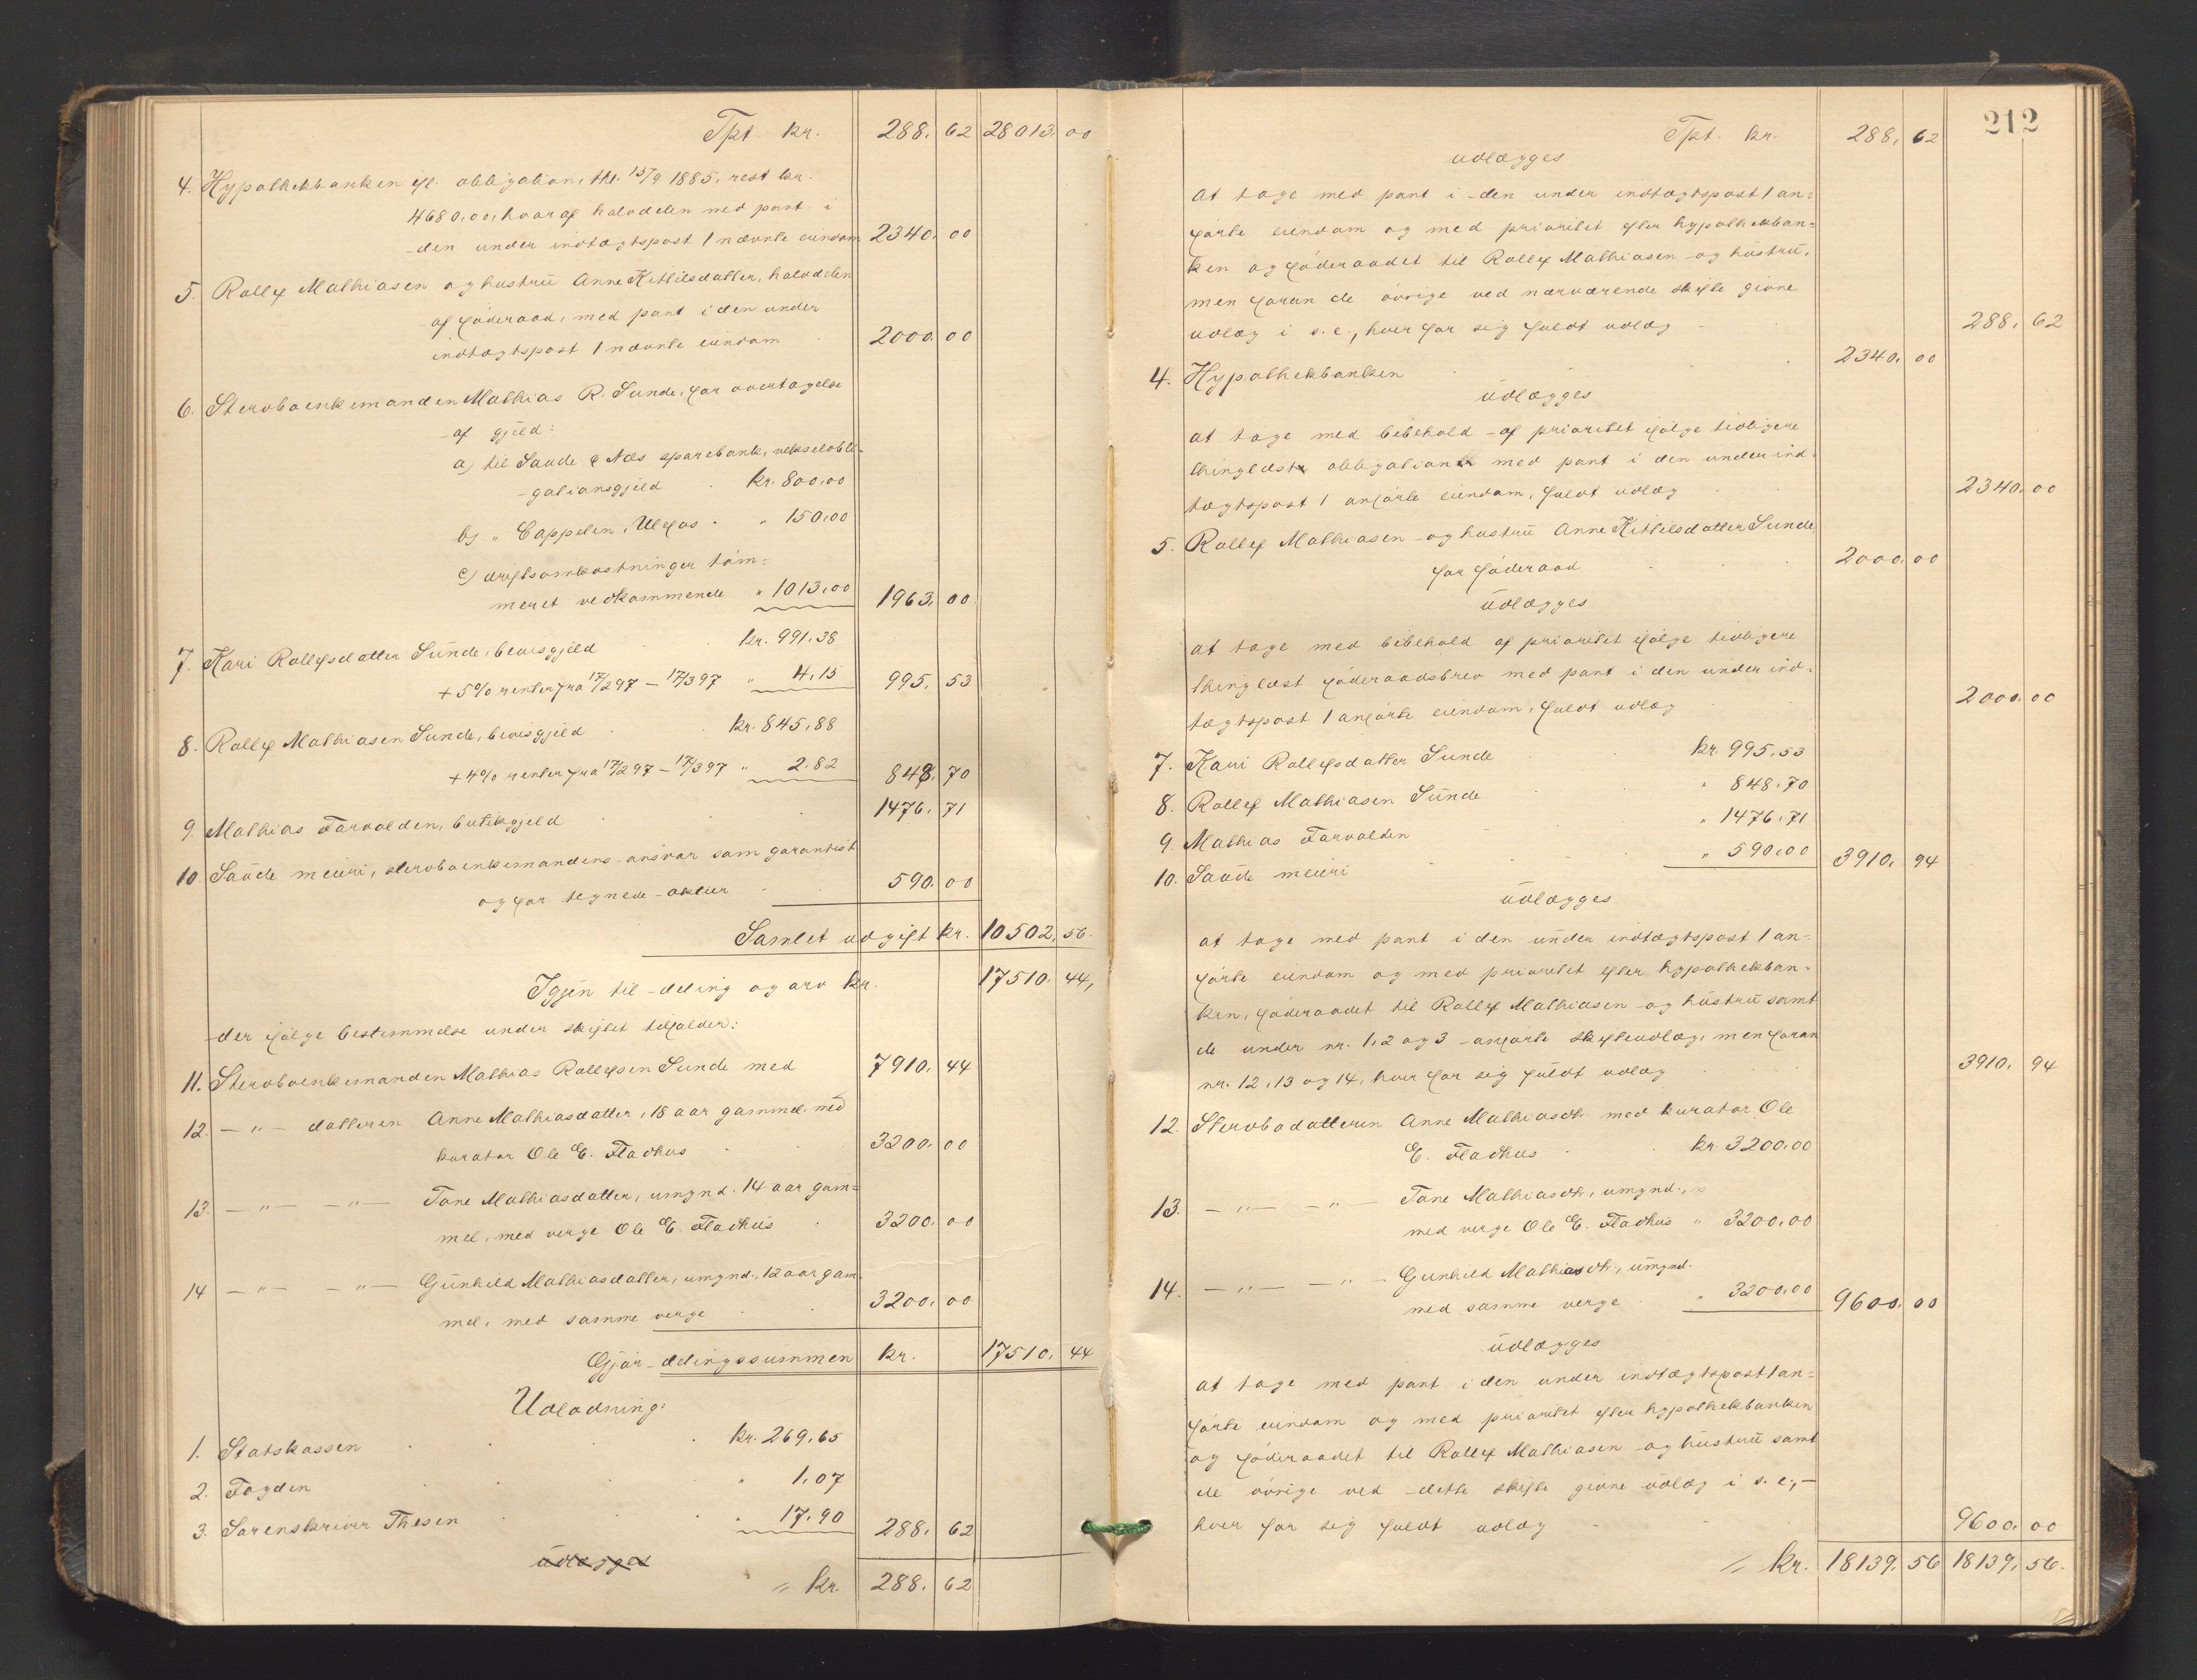 Tpt. kr. 288. 62 28013. 00
4. Hypothekbanken ifl. obligation, thl. 15/9 1885, rest kr.
4680,00, hvoraf halvdelen med pant i
den under indtægtspost 1 nævnte eiendom 2340. 00
5. Rollef Mathiasen og hustrü Anne Kittilsdatter, halvdelen
af föderaad, med pant i den under
indtægtspost 1 nævnte eiendom 2000. 00
6. Stervboenkemanden Mathias R. Sunde, for overtagelse
af gjeld:
a) til Saude & Næs sparebank, vekselobli-
gationsgjeld kr. 800.00
b) " Cappelen, Ulefos " 150.00
c) driftsomkostninger töm-
meret vedkommende " 1013.00 1963. 00
7. Kari Rollefsdatter Sünde, bevisgjeld kr. 991.38
+ 5% renter fra 17/2 97 – 17/3 97 " 4.15 995. 53
8. Rollef Mathiasen Sunde, bevisgjeld kr. 845.88
+ 4% renter fra 17/2 97 – 17/3 97 " 2.82 848. 70
9. Mathias Farvolden, butikgjeld 1476. 71
10. Saüde meieri, stervboenkemandens ansvar som garantist
og for tegnede aktier 590. 00
Samlet udgift kr. 10502. 56.
Igjen til deling og arv kr. 17510. 44,
der ifölge bestemmelse under skiftet tilfalder:
11. Stervboenkemanden Mathias Rollefsen Sunde med 7910. 44
12. – " – datteren Anne Mathiasdatter, 18 aar gammel med
kurator Ole E. Fladhus 3200. 00
13. – " – – " – Tone Mathiasdatter, umynd. 14 aar gam=
mel, med verge Ole E. Fladhüs 3200. 00
14 – " – – " – Günhild Mathiasdatter, umynd., 12 aar gam-
mel, med samme verge 3200. 00
Gjör delingssummen kr. 17510. 44
Udlodning:
1. Statskassen kr. 269.65
2. Fogden " 1.07
3. Sorenskriver Thesen " 17.90 288. 62
üdlægges
= kr. 288. 62
212
Tpt. kr. 288. 62
udlægges
at tage med pant i den under indtægtspost 1 an=
förte eiendom og med prioritet efter hypothekban=
ken og föderaadet til Rollef Mathiasen og hüstrü,
men foran de övrige ved nærværende skifte givne
udlæg i s. e., hver for sig fuldt udlæg 288. 62
4. Hypothekbanken 2340. 00
üdlægges
at tage med bibehold af prioritet ifölge tidligere
thinglæst obligation med pant i den under ind-
tægtspost 1 anförte eiendom, fuldt udlæg 2340. 00
5. Rollef Mathiasen og hustrü Anne Kittilsdatter Sunde,
for föderaad 2000. 00
üdlægges
at tage med bibehold af prioritet ifölge tidligere
thinglæst föderaadsbrev med pant i den under ind-
tægtspost 1 anförte eiendom, fuldt udlæg 2000. 00
7. Kari Rollefsdatter Sunde kr. 995.53
8. Rollef Mathiasen Sünde " 848.70
9. Mathias Farvolden " 1476.71
10. Saüde meieri " 590.00 3910. 94
üdlægges
at tage med pant i den ünder indtægtspost 1 an-
förte eiendom og med prioritet efter hypothekban-
ken, föderaadet til Rollef Mathiasen og hüstrü samt
de under nr. 1, 2 og 3 anförte skifteudlæg, men foran
nr. 12, 13 og 14, hver for sig füldt udlæg 3910. 94
12. Stervbodatteren Anne Mathiasdtr. med kurator Ole
E. Fladhus kr. 3200.00
13. – " – – " – Tone Mathiasdtr., umynd.,
med verge Ole E. Fladhüs " 3200.00
14. – " – – " – Gunhild Mathiasdtr., ümynd.
med samme verge " 3200.00 9600. 00
üdlægges
at tage med pant i den under indtægtspost 1 an=
förte eiendom og med prioritet efter hypothekbanken
og föderaadet til Rollef Mathiasen og hüstrü samt
de övrige ved dette skifte givne üdlæg i s. e., –
hver for sig fuldt udlæg 9600. 00
= kr. 18139. 56 18139. 56.